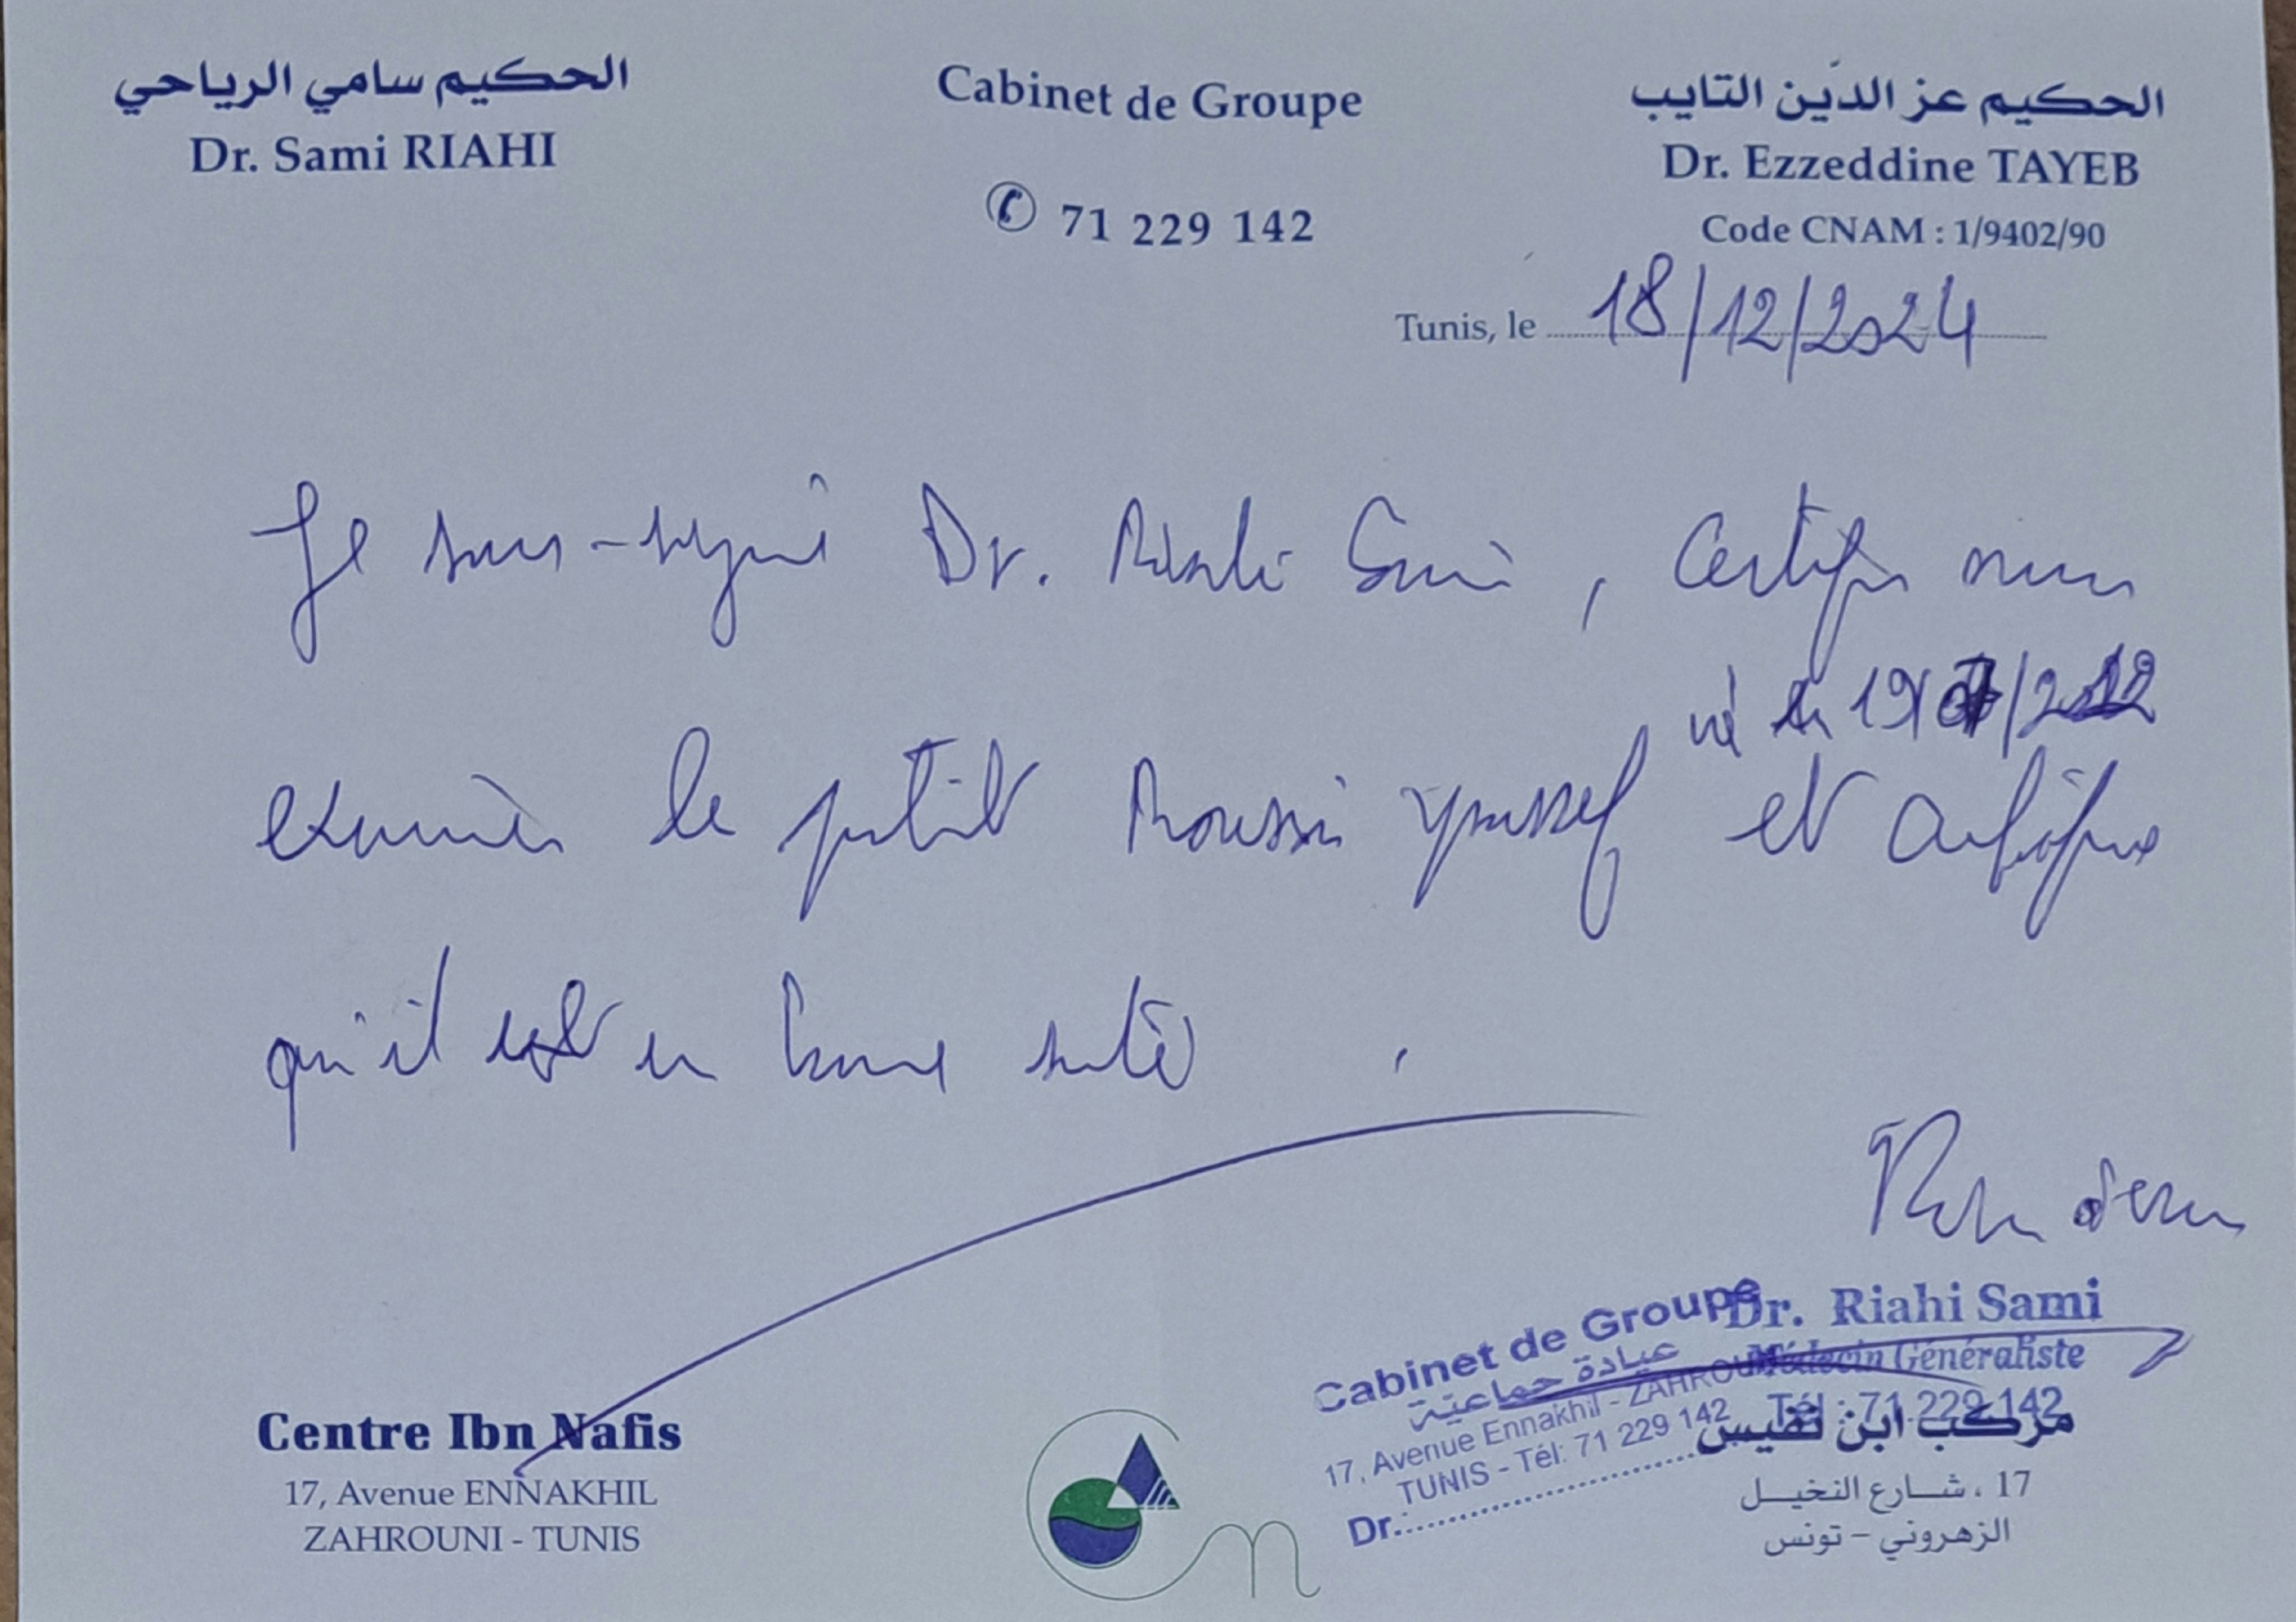 الحكيم سامي الرياحي
Dr. Sami RIAHI
Cabinet de Groupe
✆ 71 229 142
الحكيم عز الدّين التايب
Dr. Ezzeddine TAYEB
Code CNAM : 1/9402/90
Tunis, le 18/12/2024
Je sous-signé Dr. Riahi Sami, certifie avoir
né le 19/
examiner le petit Youssef et
qu'il est en bonne santé.
Dr. Riahi Sami
Médecin Généraliste
Tél : 71.229.142
Cabinet de Groupe
عيادة جماعيّة
17, Avenue Ennakhil - ZAHROUNI
TUNIS - Tél: 71 229 142
Dr.
Centre Ibn Nafis
17, Avenue ENNAKHIL
ZAHROUNI - TUNIS
مركب ابن نفيس
17 ، شارع النخيل
الزهروني - تونس